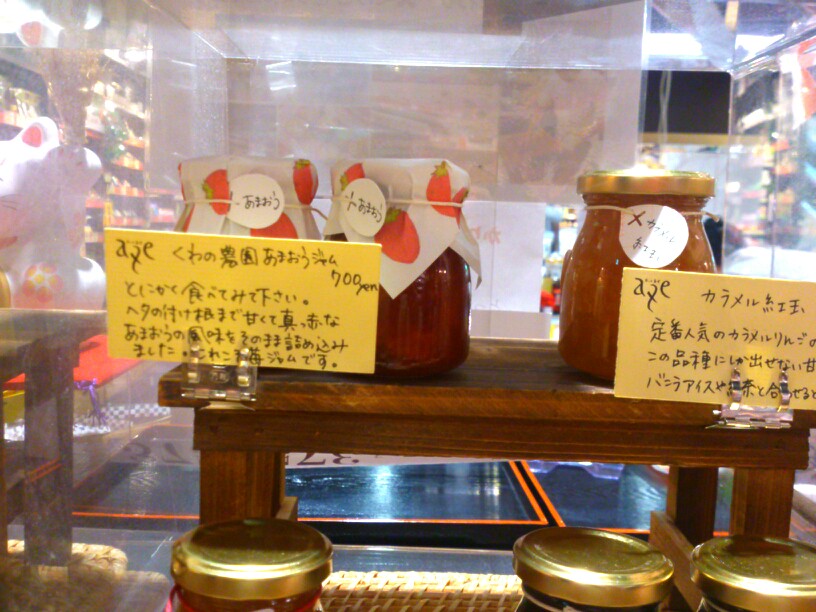 あまおう
あまおう
カラメル
くわの農園 あまおうジャム
700yen
とにかく食べてみて下さい。
ヘタの付け根まで甘くて真っ赤な
あまおうの風味をそのまま詰め込み
ました。これこそ苺ジャムです。
カラメル紅玉
定番人気のカラメルりんごの
この品種にしか出せない甘
バニラアイスや紅茶と合せると